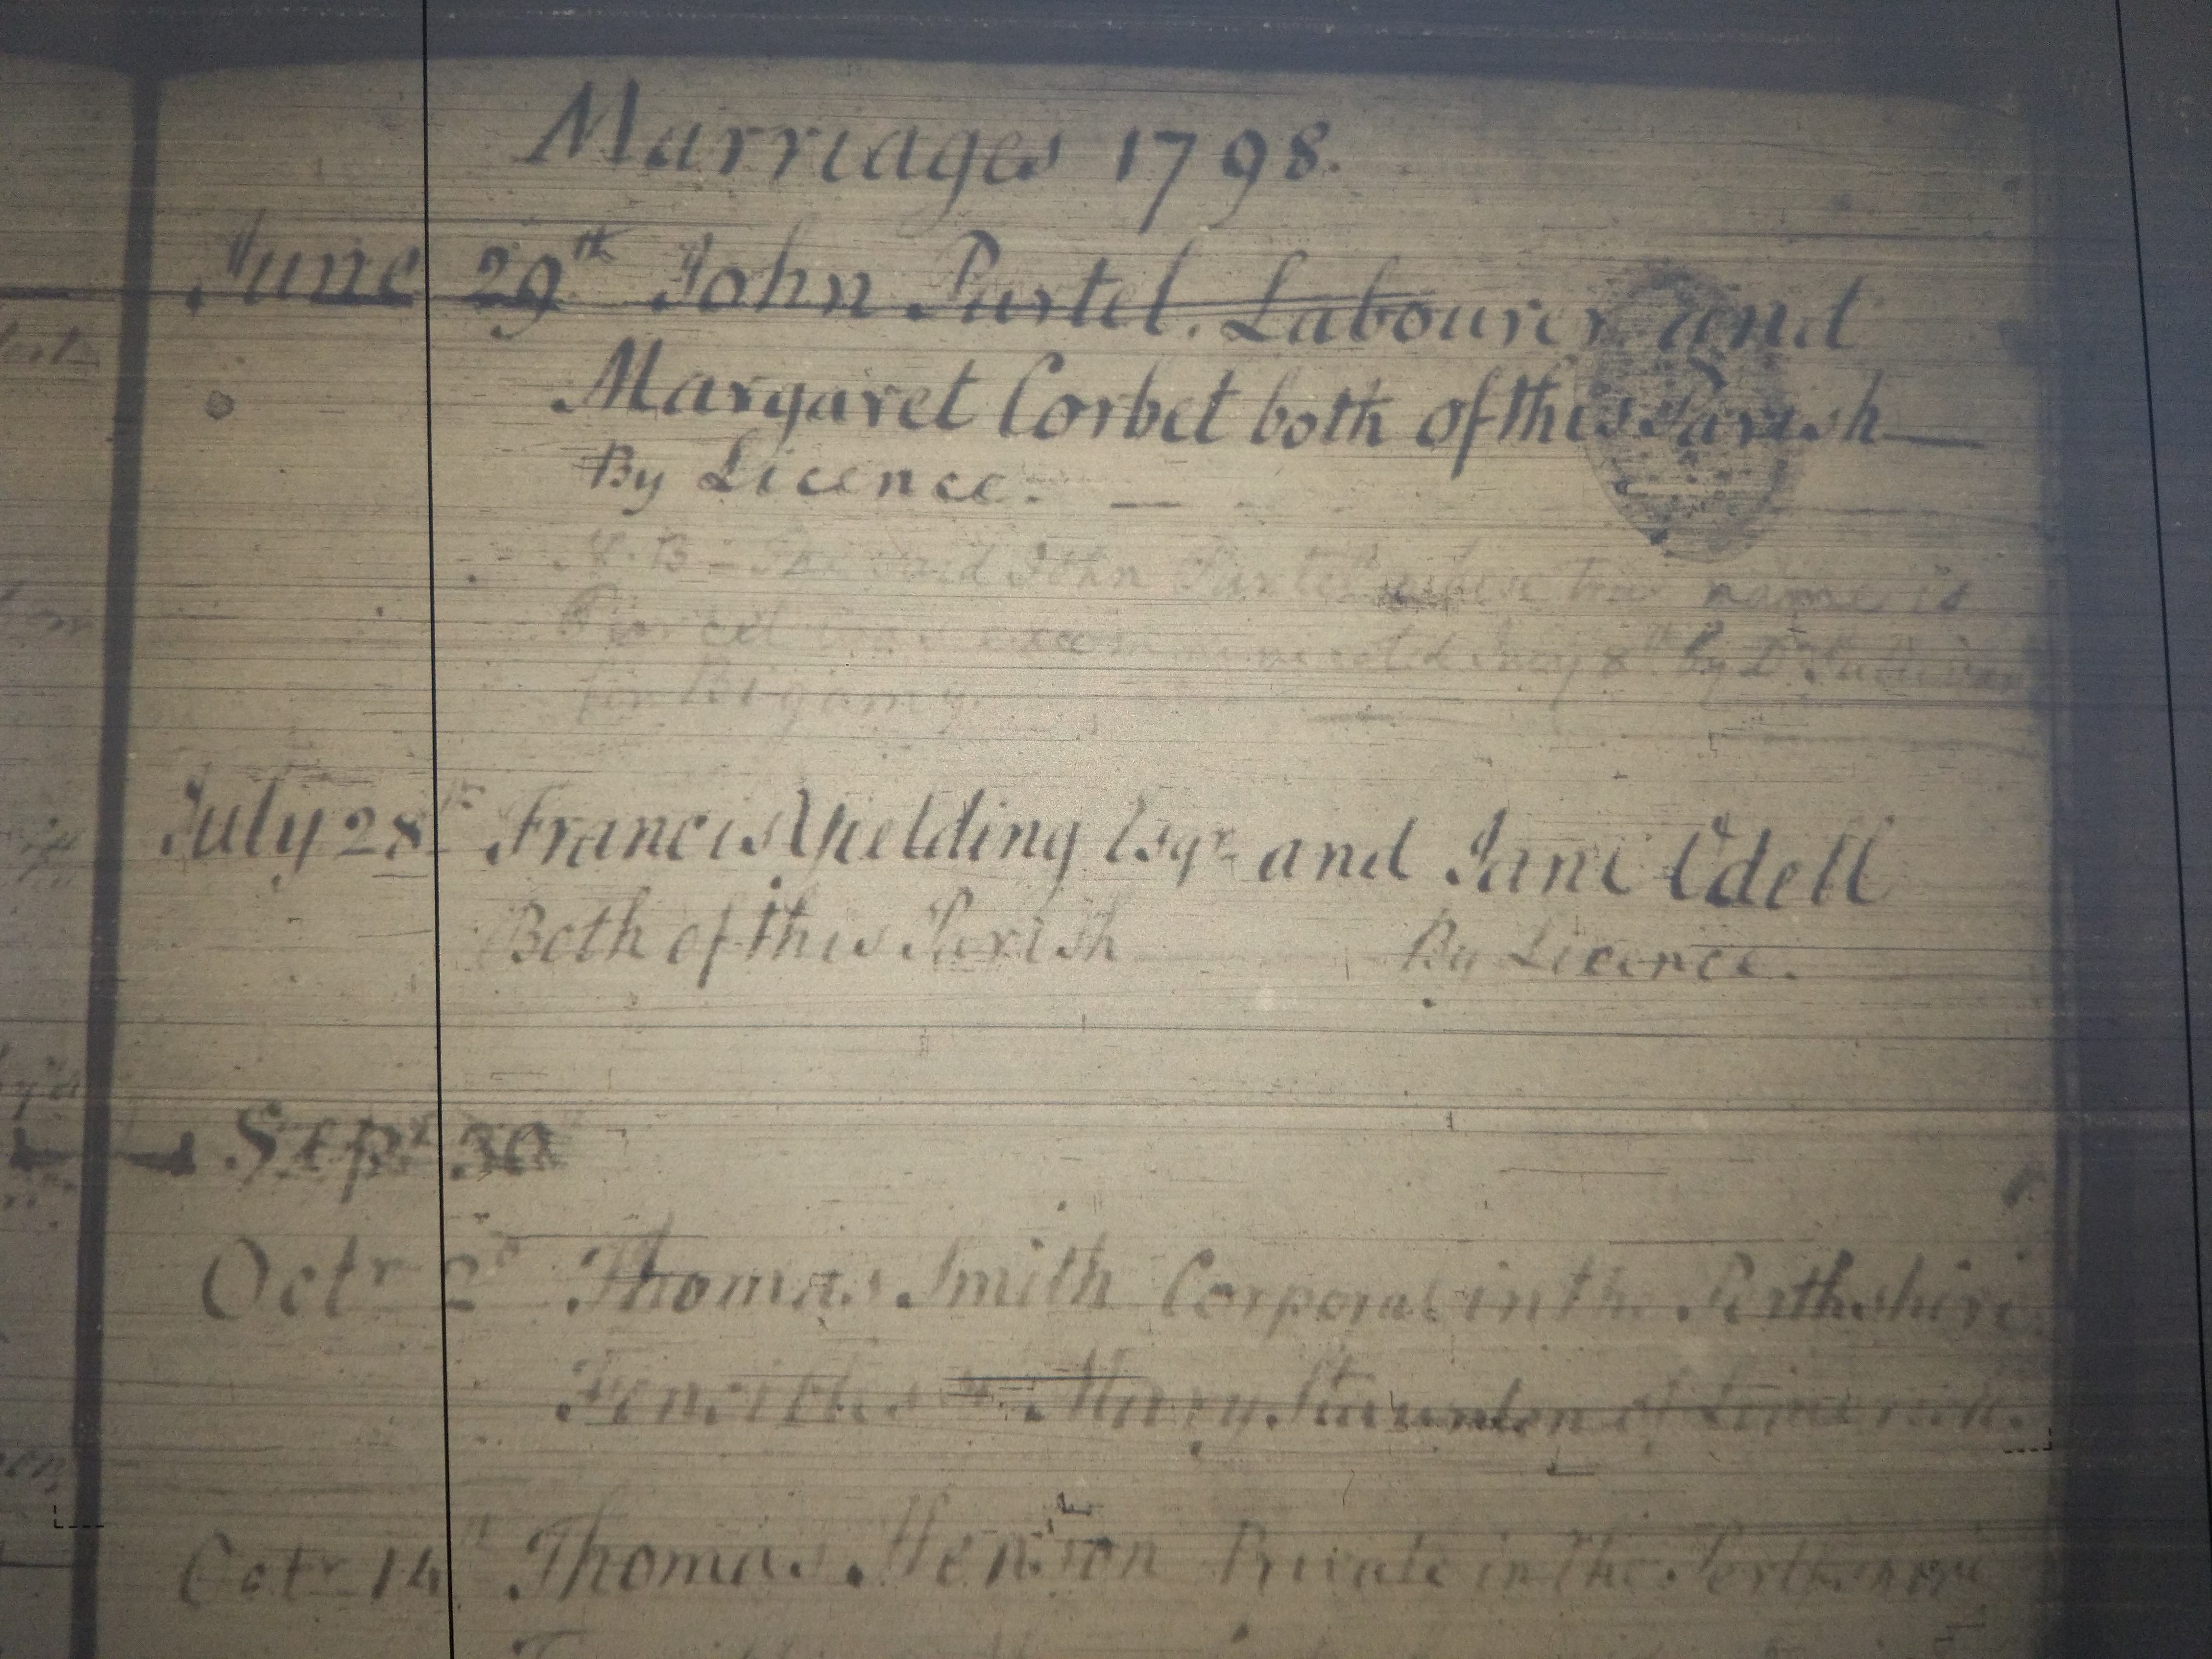 Marriages 1798.
June 29th John Purtel. Labourer and
Margaret Corbet both of this Parish
By Licence.
N.B - The said John Purtell whose true name is
Purcel was excommunicated by Dr
for Bigamy.
July 28th Francis Yielding Esqr and Jane Odell
Both of this Parish By Licence.
Sepr 30
Octr 2d Thomas Smith Corporal in the Perthshire
Fencibles Mary Staunton of Limerick.
Octr 14th Thomas Private in the